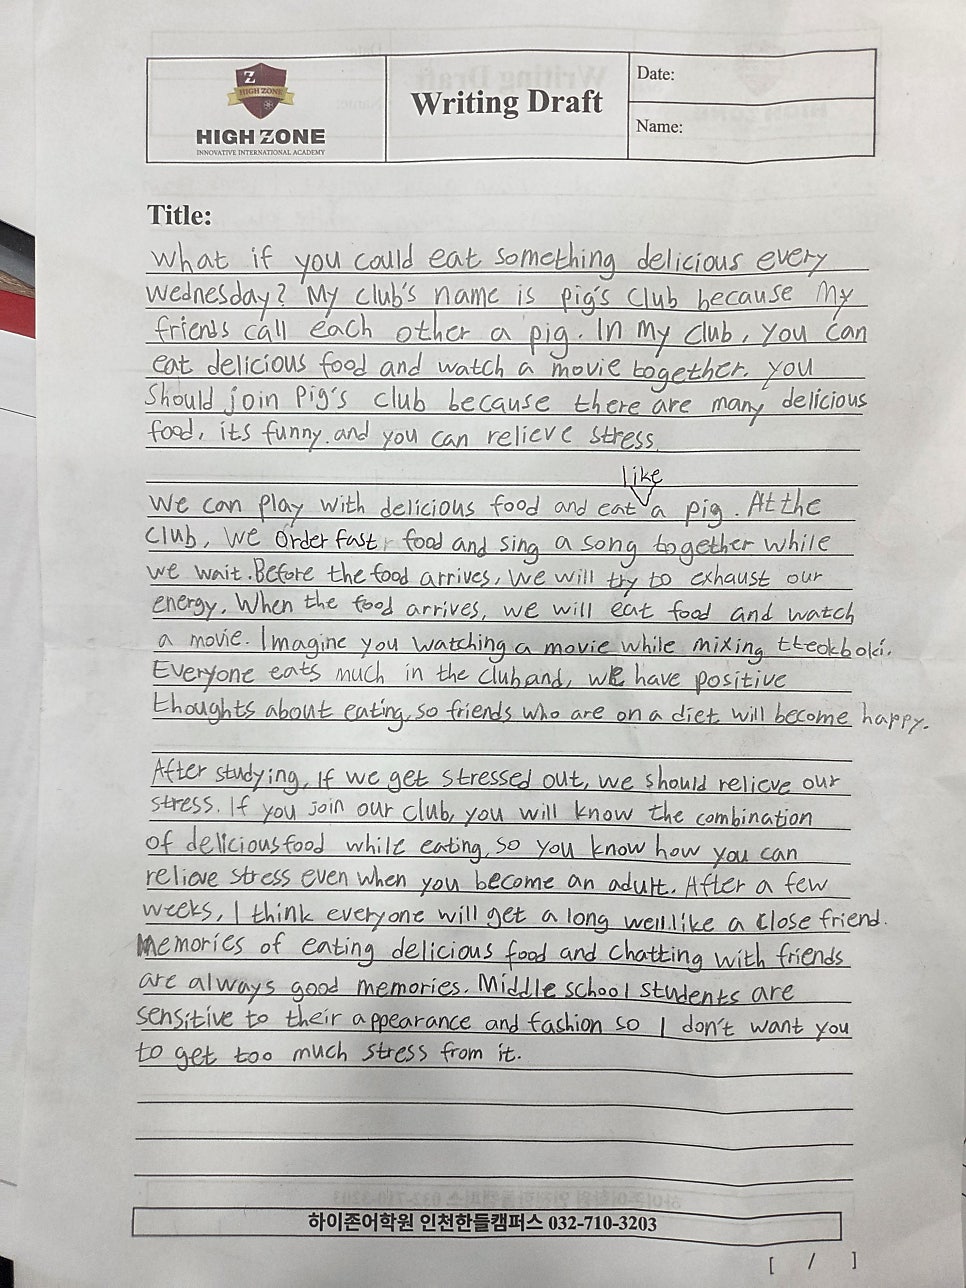 Z
HIGH ZONE
HIGH ZONE
INNOVATIVE INTERNATIONAL ACADEMY
Writing Draft
Date:
Name:
Title:
What if you could eat something delicious every
Wednesday? My club's name is pig's club because My
friends call each other a pig. In my club, you can
eat delicious food and watch a movie together. you
Should join Pig's club because there are many delicious
food, its funny.and you can relieve stress.
like
We can play with delicious food and eat a pig. At the
club, we order fast food and sing a song together while
we wait. Before the food arrives, we will try to exhaust our
energy. When the food arrives, we will eat food and watch
a movie. Imagine you watching a movie while mixing tteokboki.
Everyone eats much in the club and, we have positive
thoughts about eating, so friends who are on a diet will become happy.
After studying, If we get stressed out, we should relieve our
stress. If you join our club, you will know the combination
of delicious food while eating, so you know how you can
relieve stress even when you become an adult. After a few
weeks, I think everyone will get a long well.like a close friend.
Memories of eating delicious food and chatting with friends
are always good memories. Middle school students are
sensitive to their appearance and fashion so I don't want you
to get too much stress from it.
하이존어학원 인천한들캠퍼스 032-710-3203
[ / ]